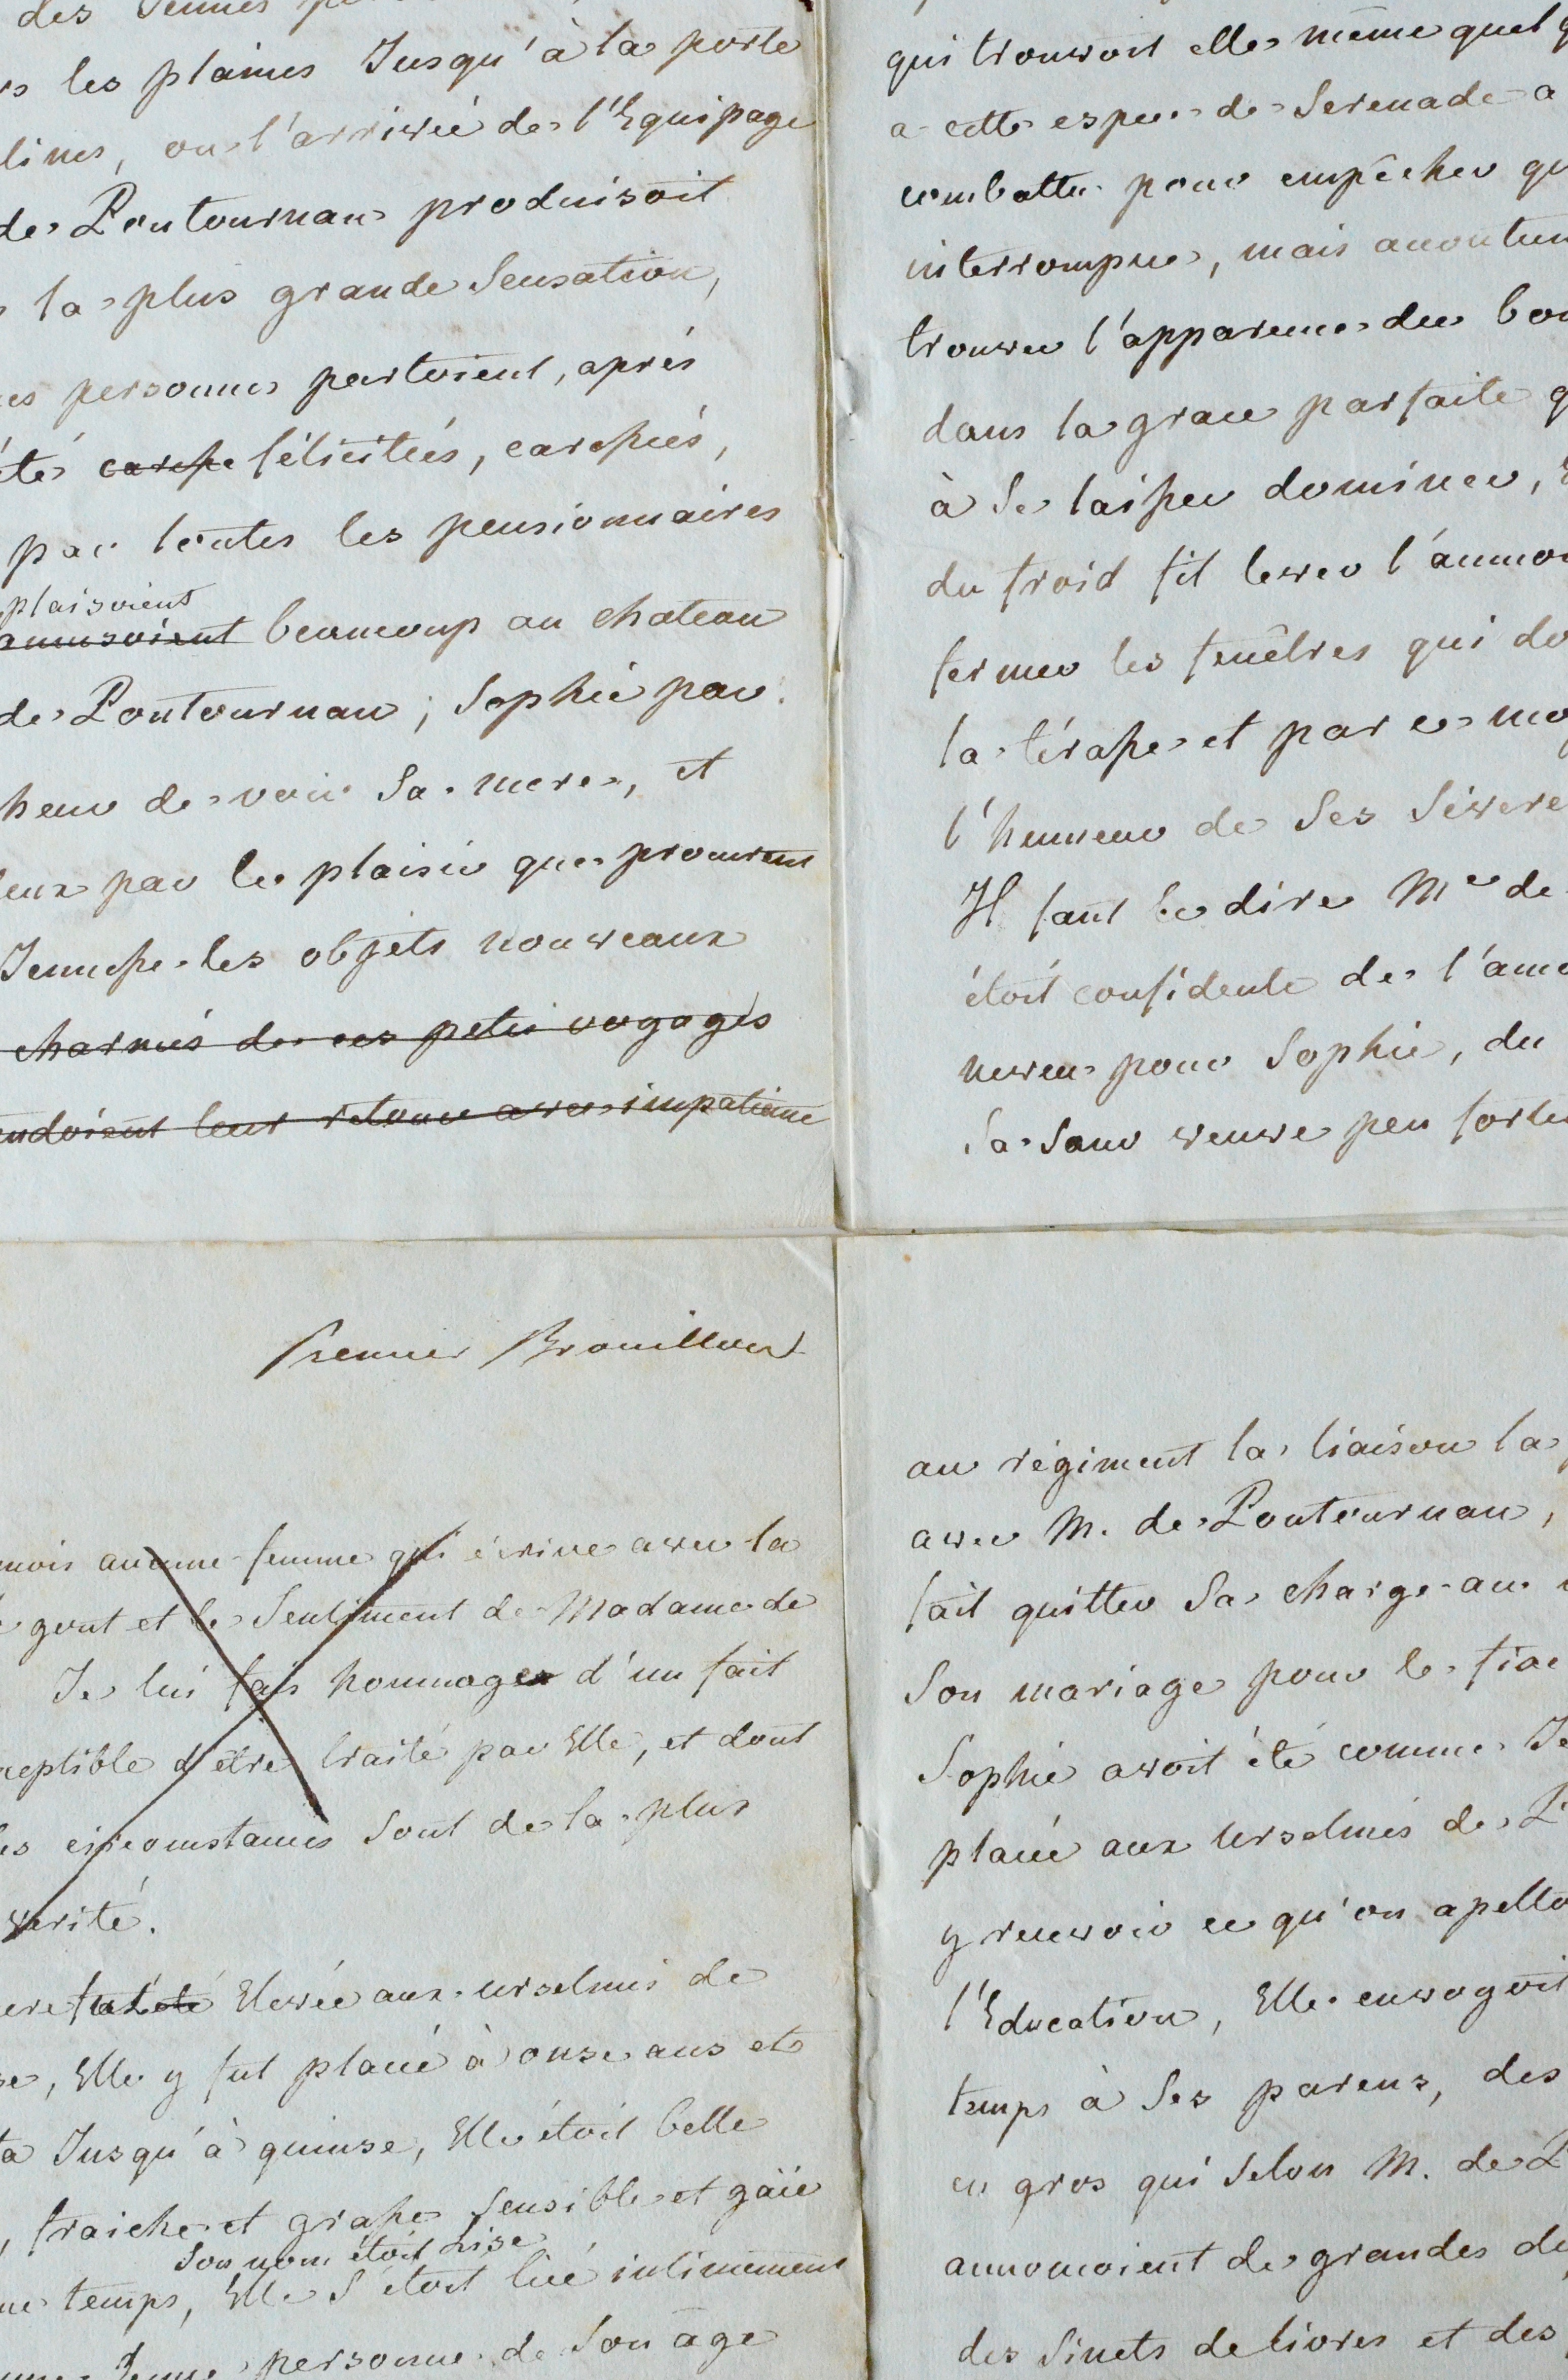 des Jeunes
les plaines Jusqu'à la porte
lines, ou l'arrivée de l'Equipage
de Pontournau produisoit
la plus grande Sensation,
es personnes partoient, aprés
été caressé félicitées, caressés,
par toutes les pensionnaires
plaisoient
amusoient beaucoup au chateau
de Pontournau ; Sophie par
heur de voir Sa mere, et
eux par le plaisir que procurent
Jeunesse les objets nouveaux
charmés de ces petis voyages
endoient leur retour avec impatience
qui trouvoit elle même quel
a cette espece de Serenade a
combattre pour empêcher qu
interrompue, mais
trouver l'apparence du bon
dans la grace parfaite q
à Se laisser dominer,
du froid fit lever l'aumon
fermer les fenêtres qui do
la térasse et par ce mo
l'humeur de Ses Severe
Il faut le dire Me de
étoit confidente de l'amo
neveu pour Sophie, du
Sa Sœur veuve peu fortu
Premier Brouillon
nois aucune femme qui écrive avec la
gout et le Sentiment de Madame de
Je lui fais hommage d'un fait
ceptible d'être traité par Elle, et dont
es circonstances Sont de la plus
verité.
ere fut été Elevée aux urselines de
se, Elle y fut placé à onse ans et
ta Jusqu'à quinse, Elle étoit belle
, fraiche et grasse Sensible et gaïe
Son nom étoit Lise
me temps, Elle S'étoit lié intimement
Jeune personne de Son age
au régiment la liaison la
avec M. de Pontournau,
fait quitter Sa charge au
Son mariage pour le
Sophie avoit été comme Je
placé aux urselines de
y recevoir ce qu'on apello
l'Education, Elle envoyoit
temps à Ses parens, des
en gros qui Selon M. de P
annoncoient de grandes
des Sinets de livres et des